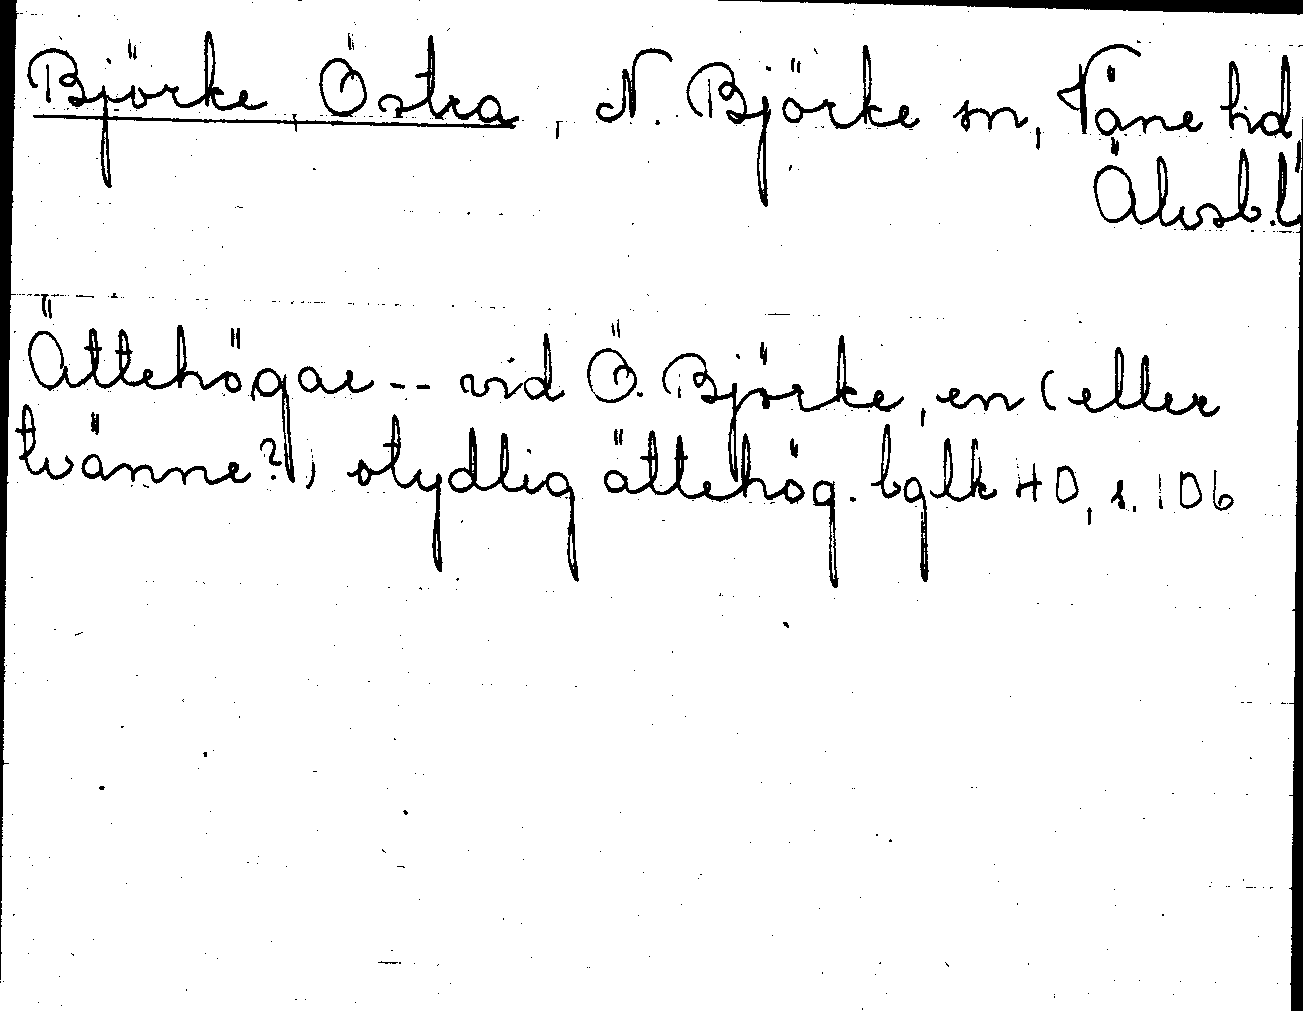 Björke, Östra, N. Björke sn, Väne hd,
Älvsb.l
Ättehögar -- vid Ö. Björke, en (eller
tvänne?) otydlig ättehög. bglk 40, s. 106